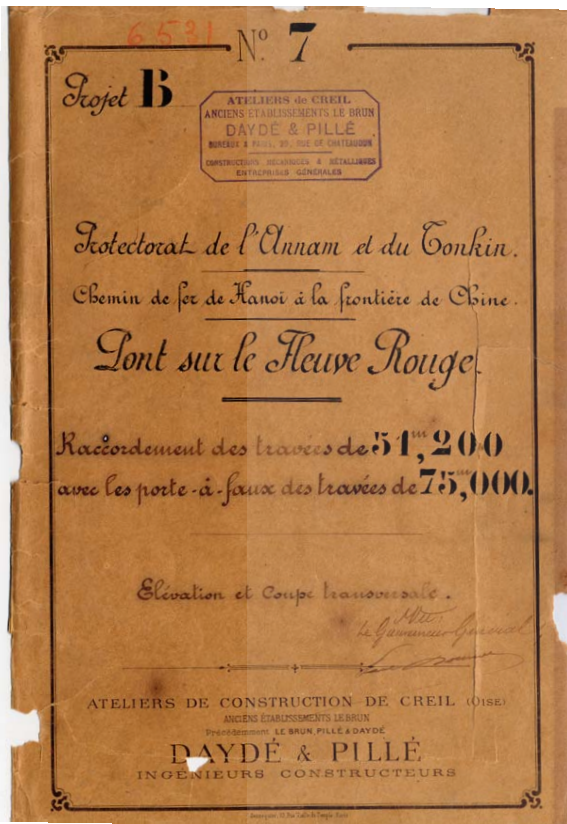 6531
Nº. 7
Projet B
ATELIERS de CREIL
ANCIENS ÉTABLISSEMENTS LE BRUN
DAYDÉ & PILLÉ
BUREAUX À PARIS, 29, RUE DE CHATEAUDUN
CONSTRUCTIONS MÉCANIQUES & MÉTALLIQUES
ENTREPRISES GÉNÉRALES
Protectorat de l'Annam et du Tonkin.
Chemin de fer de Hanoï à la frontière de Chine.
Pont sur le Fleuve Rouge.
Raccordement des travées de 51,m200
avec les porte-à-faux des travées de 75,m000.
Elévation et Coupe transversale.
Vu
Le Gouverneur Général
ATELIERS DE CONSTRUCTION DE CREIL (OISE)
ANCIENS ÉTABLISSEMENTS LE BRUN
Précédemment LE BRUN, PILLÉ & DAYDÉ
DAYDÉ & PILLÉ
INGÉNIEURS CONSTRUCTEURS